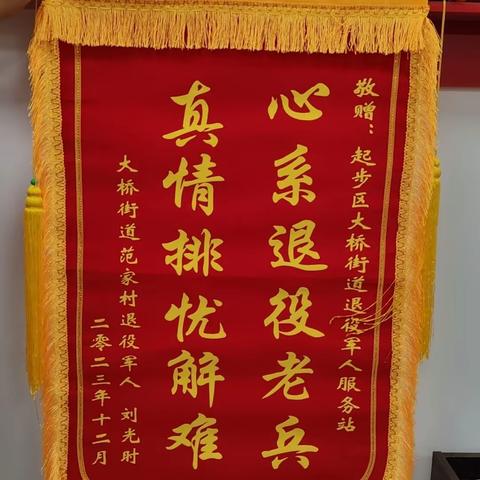 敬赠：起步区大桥街道退役军人服务站
心系退役老兵
真情排忧解难
大桥街道范家村退役军人 刘光时
二零二三年十二月